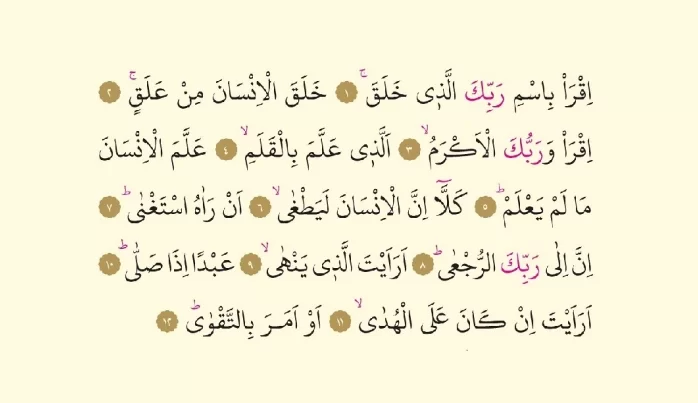 اِقْرَأْ بِاسْمِ رَبِّكَ الَّذٖى خَلَقَۚ ﴿١﴾ خَلَقَ الْاِنْسَانَ مِنْ عَلَقٍۚ ﴿٢﴾
اِقْرَأْ وَرَبُّكَ الْاَكْرَمُۙ ﴿٣﴾ اَلَّذٖى عَلَّمَ بِالْقَلَمِۙ ﴿٤﴾ عَلَّمَ الْاِنْسَانَ
مَا لَمْ يَعْلَمْؕ ﴿٥﴾ كَلَّٓا اِنَّ الْاِنْسَانَ لَيَطْغٰىۙ ﴿٦﴾ اَنْ رَاٰهُ اسْتَغْنٰىؕ ﴿٧﴾
اِنَّ اِلٰى رَبِّكَ الرُّجْعٰىؕ ﴿٨﴾ اَرَاَيْتَ الَّذٖى يَنْهٰىۙ ﴿٩﴾ عَبْدًا اِذَا صَلّٰىؕ ﴿١٠﴾
اَرَاَيْتَ اِنْ كَانَ عَلَى الْهُدٰىۙ ﴿١١﴾ اَوْ اَمَرَ بِالتَّقْوٰىؕ ﴿١٢﴾